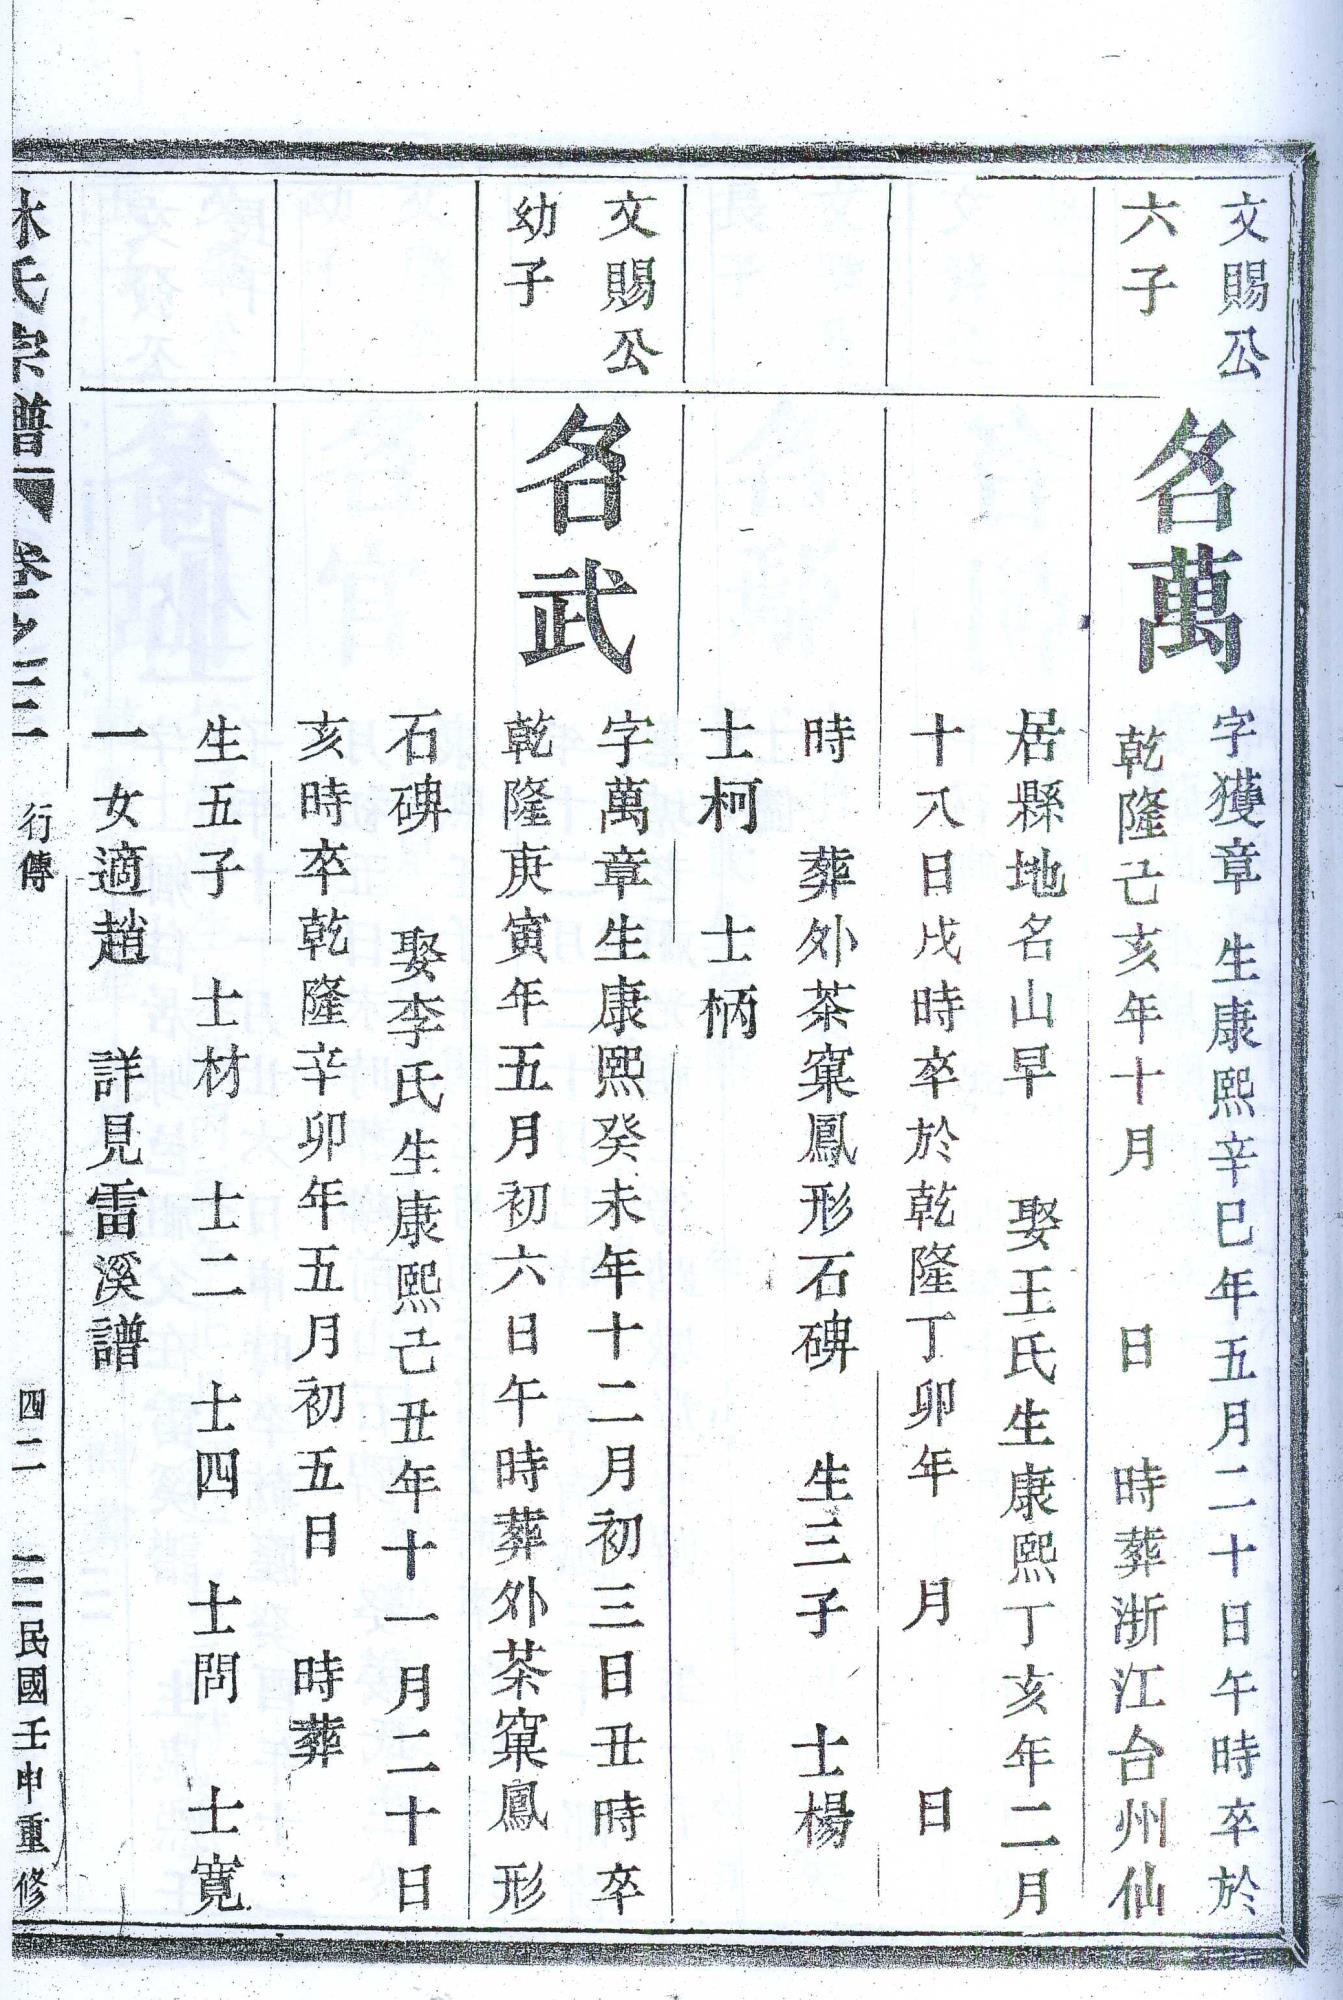 文賜公
六子
名萬
字獲章 生康熙辛巳年五月二十日午時卒於
乾隆己亥年十月 日 時葬浙江台州仙
居縣地名山早 娶王氏生康熙丁亥年二月
十八日戌時卒於乾隆丁卯年 月 日
時 葬外茶窠鳳形石碑 生三子 士楊
士柯 士柄
文賜公
幼子
名武
字萬章生康熙癸未年十二月初三日丑時卒
乾隆庚寅年五月初六日午時葬外茶窠鳳形
石碑 娶李氏生康熙己丑年十一月二十日
亥時卒乾隆辛卯年五月初五日 時葬
生五子 士材 士二 士四 士問 士寬
一女適趙 詳見雷溪譜
林氏宗譜 卷之三 行傳 四二 民國壬申重修